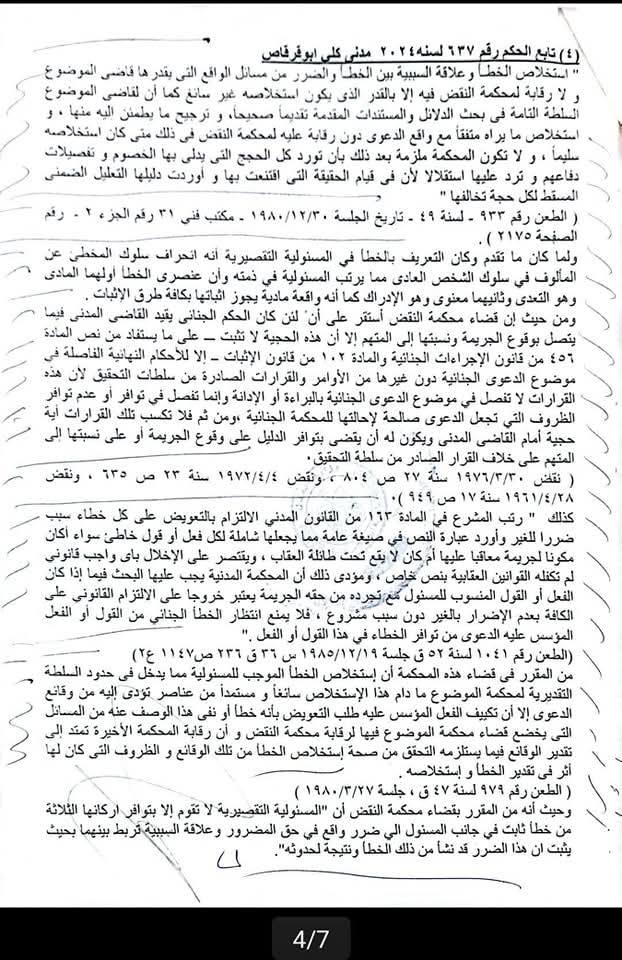 (٤) تابع الحكم رقم ٦٣٧ لسنه ٢٠٢٤ مدنى كلي ابوقرقاص
" استخلاص الخطأ وعلاقة السببية بين الخطأ والضرر من مسائل الواقع التى يقدرها قاضى الموضوع
و لا رقابة لمحكمة النقض فيه إلا بالقدر الذى يكون استخلاصه غير سائغ كما أن لقاضى الموضوع
السلطة التامة فى بحث الدلائل والمستندات المقدمة تقديماً صحيحاً، و ترجيح ما يطمئن اليه منها ، و
استخلاص ما يراه متفقاً مع واقع الدعوى دون رقابة عليه لمحكمة النقض فى ذلك متى كان استخلاصه
سليماً ، و لا تكون المحكمة ملزمة بعد ذلك بأن تورد كل الحجج التى يدلى بها الخصوم و تفصيلات
دفاعهم و ترد عليها استقلالا لأن فى قيام الحقيقة التى اقتنعت بها و أوردت دليلها التعليل الضمنى
المسقط لكل حجة تخالفها "
( الطعن رقم ٩٣٣ - لسنة ٤٩ - تاريخ الجلسة ١٩٨٠/١٢/٣٠ - مكتب فني ٣١ رقم الجزء ٢ - رقم
الصفحة ٢١٧٥ ) .
ولما كان ما تقدم وكان التعريف بالخطأ في المسئولية التقصيرية أنه انحراف سلوك المخطئ عن
المألوف في سلوك الشخص العادى مما يرتب المسئولية في ذمته وأن عنصرى الخطأ أولهما المادى
وهو التعدى وثانيهما معنوى وهو الإدراك كما أنه واقعة مادية يجوز اثباتها بكافة طرق الإثبات .
ومن حيث إن قضاء محكمة النقض أستقر على أن" لئن كان الحكم الجنائي يقيد القاضى المدنى فيما
يتصل بوقوع الجريمة ونسبتها إلى المتهم إلا أن هذه الحجية لا تثبت ــ على ما يستفاد من نص المادة
٤٥٦ من قانون الإجراءات الجنائية والمادة ١٠٢ من قانون الإثبات ــ إلا للأحكام النهائية الفاصلة في
موضوع الدعوى الجنائية دون غيرها من الأوامر والقرارات الصادرة من سلطات التحقيق لأن هذه
القرارات لا تفصل في موضوع الدعوى الجنائية بالبراءة أو الإدانة وإنما تفصل في توافر أو عدم توافر
الظروف التي تجعل الدعوى صالحة لإحالتها للمحكمة الجنائية ،ومن ثم فلا تكسب تلك القرارات أية
حجية أمام القاضي المدنى ويكون له أن يقضى بتوافر الدليل على وقوع الجريمة أو على نسبتها إلى
المتهم على خلاف القرار الصادر من سلطة التحقيق.
( نقض ١٩٧٦/٣/٣٠ سنة ٢٧ ص ٨٠٤ ، ونقض ١٩٧٢/٤/٤ سنة ٢٣ ص ٦٣٥ ، ونقض
١٩٦١/٤/٢٨ سنة ١٧ ص ٩٤٩ ).
كذلك " رتب المشرع في المادة ١٦٣ من القانون المدني الالتزام بالتعويض على كل خطاء سبب
ضررا للغير وأورد عبارة النص في صيغة عامة مما يجعلها شاملة لكل فعل أو قول خاطئ سواء أكان
مكونا لجريمة معاقبا عليها أم كان لا يقع تحت طائلة العقاب ، ويقتصر على الإخلال باى واجب قانوني
لم تكفله القوانين العقابية بنص خاص ، ومؤدى ذلك أن المحكمة المدنية يجب عليها البحث فيما إذا كان
الفعل أو القول المنسوب للمسئول مع تجرده من حقه الجريمة يعتبر خروجا على الالتزام القانوني على
الكافة بعدم الإضرار بالغير دون سبب مشروع ، فلا يمنع انتظار الخطأ الجنائي من القول أو الفعل
المؤسس عليه الدعوى من توافر الخطاء في هذا القول أو الفعل ."
(الطعن رقم ١٠٤١ لسنة ٥٢ ق جلسة ١٩٨٥/١٢/١٩ س ٣٦ ق ٢٣٦ ص١١٤٧ ع٢)
من المقرر فى قضاء هذه المحكمة أن إستخلاص الخطأ الموجب للمسئولية مما يدخل فى حدود السلطة
التقديرية لمحكمة الموضوع ما دام هذا الإستخلاص سائغاً و مستمداً من عناصر تؤدى إليه من وقائع
الدعوى إلا أن تكييف الفعل المؤسس عليه طلب التعويض بأنه خطأ أو نفى هذا الوصف عنه من المسائل
التى يخضع قضاء محكمة الموضوع فيها لرقابة محكمة النقض و أن رقابة المحكمة الأخيرة تمتد إلى
تقدير الوقائع فيما يستلزمه التحقق من صحة إستخلاص الخطأ من تلك الوقائع و الظروف التى كان لها
أثر فى تقدير الخطأ و إستخلاصه .
( الطعن رقم ٩٧٩ لسنة ٤٧ ق ، جلسة ١٩٨٠/٣/٢٧ )
وحيث أنه من المقرر بقضاء محكمة النقض أن "المسئولية التقصيرية لا تقوم إلا بتوافر اركانها الثلاثة
من خطأ ثابت في جانب المسئول الي ضرر واقع في حق المضرور وعلاقة السببية تربط بينهما بحيث
يثبت ان هذا الضرر قد نشأ من ذلك الخطأ ونتيجة لحدوثه".
4/7